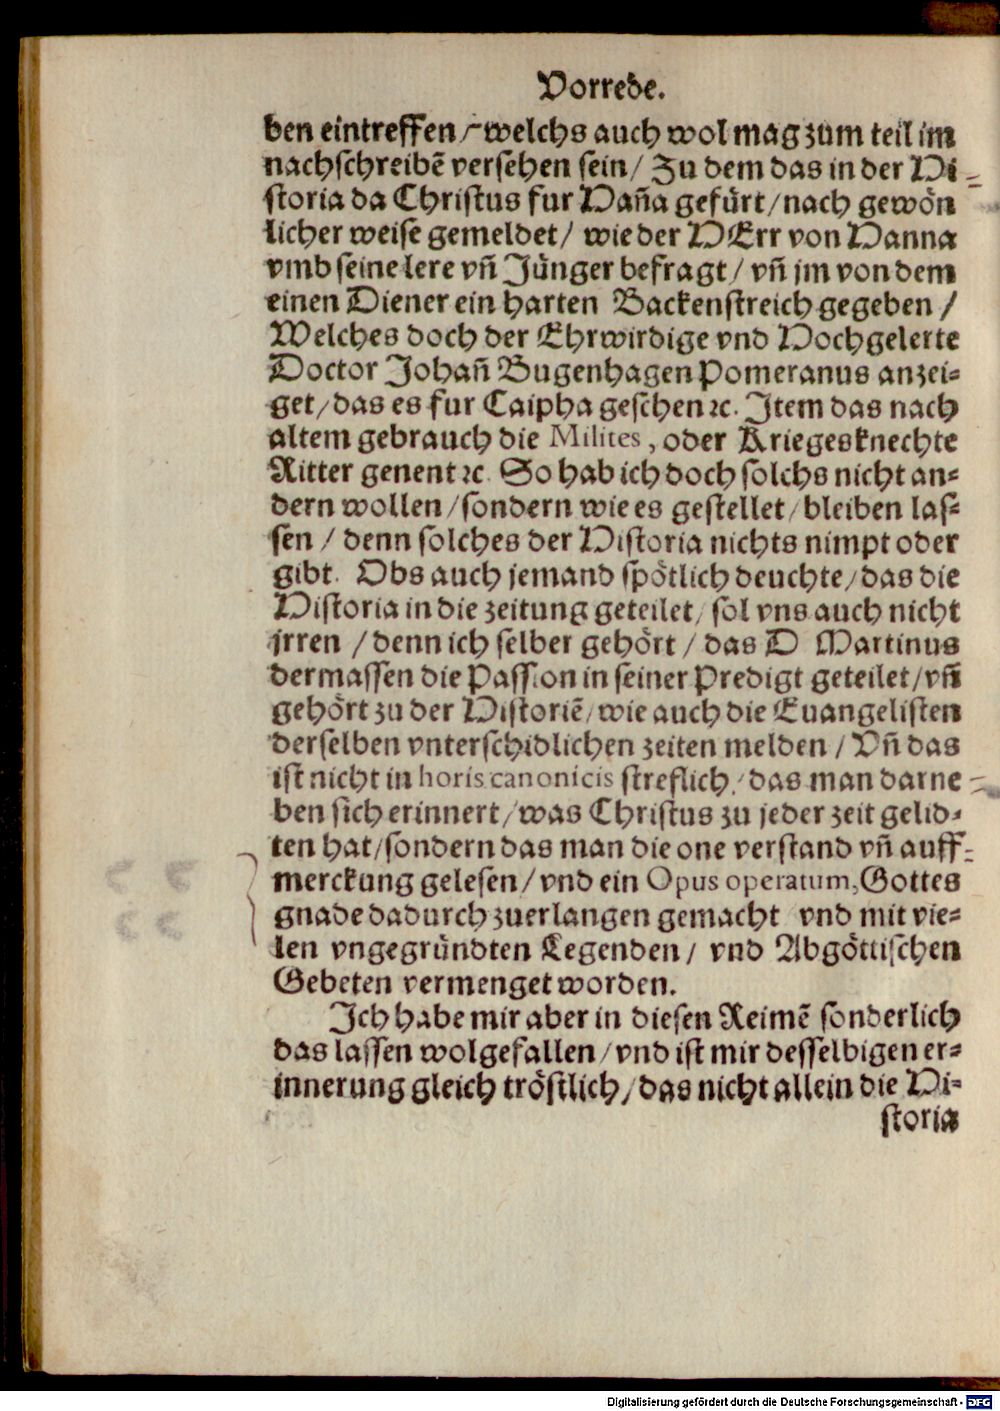 Vorrede.
ben eintreffen / welchs auch wol mag zum teil im
nachschreibē versehen sein / Zu dem das in der Hi-
storia da Christus fur Haña gefürt / nach gewön
licher weise gemeldet / wie der HErr von Hanna
vmb seine lere vñ Jünger befragt / vñ jm von dem
einen Diener ein harten Backenstreich gegeben /
Welches doch der Ehrwirdige vnd Hochgelerte
Doctor Johañ Bugenhagen Pomeranus anzei-
get / das es fur Caipha geschen ꝛc. Item das nach
altem gebrauch die Milites, oder Kriegesknechte
Ritter genent ꝛc. So hab ich doch solchs nicht an-
dern wollen / sondern wie es gestellet / bleiben las-
sen / denn solches der Historia nichts nimpt oder
gibt. Obs auch jemand spötlich deuchte / das die
Historia in die zeitung geteilet / sol vns auch nicht
jrren / denn ich selber gehört / das D Martinus
dermassen die Passion in seiner Predigt geteilet / vñ
gehört zu der Historiē / wie auch die Euangelisten
derselben vnterschidlichen zeiten melden / Vñ das
ist nicht in horis canonicis streflich / das man darne-
ben sich erinnert / was Christus zu jeder zeit gelid-
ten hat / sondern das man die one verstand vñ auff-
merckung gelesen / vnd ein Opus operatum, Gottes
gnade dadurch zuerlangen gemacht vnd mit vie-
len vngegründten Legenden / vnd Abgöttischen
Gebeten vermenget worden.
Ich habe mir aber in diesen Reimē sonderlich
das lassen wolgefallen / vnd ist mir desselbigen er-
innerung gleich tröstlich / das nicht allein die Hi-
storia
Digitalisierung gefördert durch die Deutsche Forschungsgemeinschaft - DFG